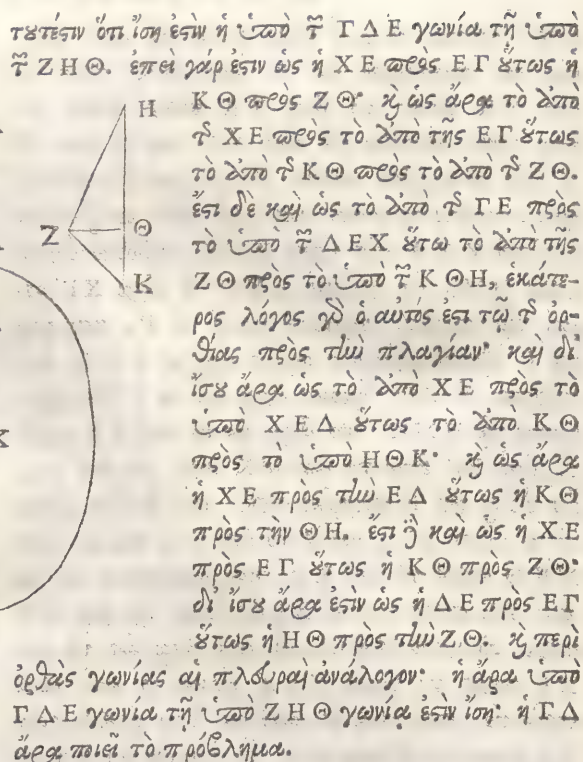 τουτέστιν ὅτι ἴση ἐστὶν ἡ ὑπὸ τ͂ ΓΔΕ γωνία τῇ ὑπὸ
τ͂ ΖΗΘ. ἐπεὶ γάρ ἐστιν ὡς ἡ ΧΕ πρὸς ΕΓ οὕτως ἡ
ΚΘ πρὸς ΖΘ· ϗ ὡς ἄρα τὸ ἀπὸ
τ͂ ΧΕ πρὸς τὸ ἀπὸ τῆς ΕΓ οὕτως
τὸ ἀπὸ τ͂ ΚΘ πρὸς τὸ ἀπὸ τ͂ ΖΘ.
ἔστι δὲ καὶ ὡς τὸ ἀπὸ τ͂ ΓΕ πρὸς
τὸ ὑπὸ τ͂ ΔΕΧ οὕτω τὸ ἀπὸ τῆς
ΖΘ πρὸς τὸ ὑπὸ τ͂ ΚΘΗ, ἑκάτε-
ρος λόγος γὰρ ὁ αὐτός ἐστι τῷ τ͂ ὀρ-
θίας πρὸς τὴν πλαγίαν· καὶ δι'
ἴσου ἄρα ὡς τὸ ἀπὸ ΧΕ πρὸς τὸ
ὑπὸ ΧΕΔ οὕτως τὸ ἀπὸ ΚΘ
πρὸς τὸ ὑπὸ ΗΘΚ· ϗ ὡς ἄρα
ἡ ΧΕ πρὸς τὴν ΕΔ οὕτως ἡ ΚΘ
πρὸς τὴν ΘΗ. ἔστι δὲ καὶ ὡς ἡ ΧΕ
πρὸς ΕΓ οὕτως ἡ ΚΘ πρὸς ΖΘ·
δι' ἴσου ἄρα ἐστὶν ὡς ἡ ΔΕ πρὸς ΕΓ
οὕτως ἡ ΗΘ πρὸς τὴν ΖΘ. ϗ περὶ
ὀρθὰς γωνίας αἱ πλευραὶ ἀνάλογον· ἡ ἄρα ὑπὸ
ΓΔΕ γωνία τῇ ὑπὸ ΖΗΘ γωνίᾳ ἐστὶν ἴση· ἡ ΓΔ
ἄρα ποιεῖ τὸ πρόβλημα.
Η
Ζ Θ
Κ